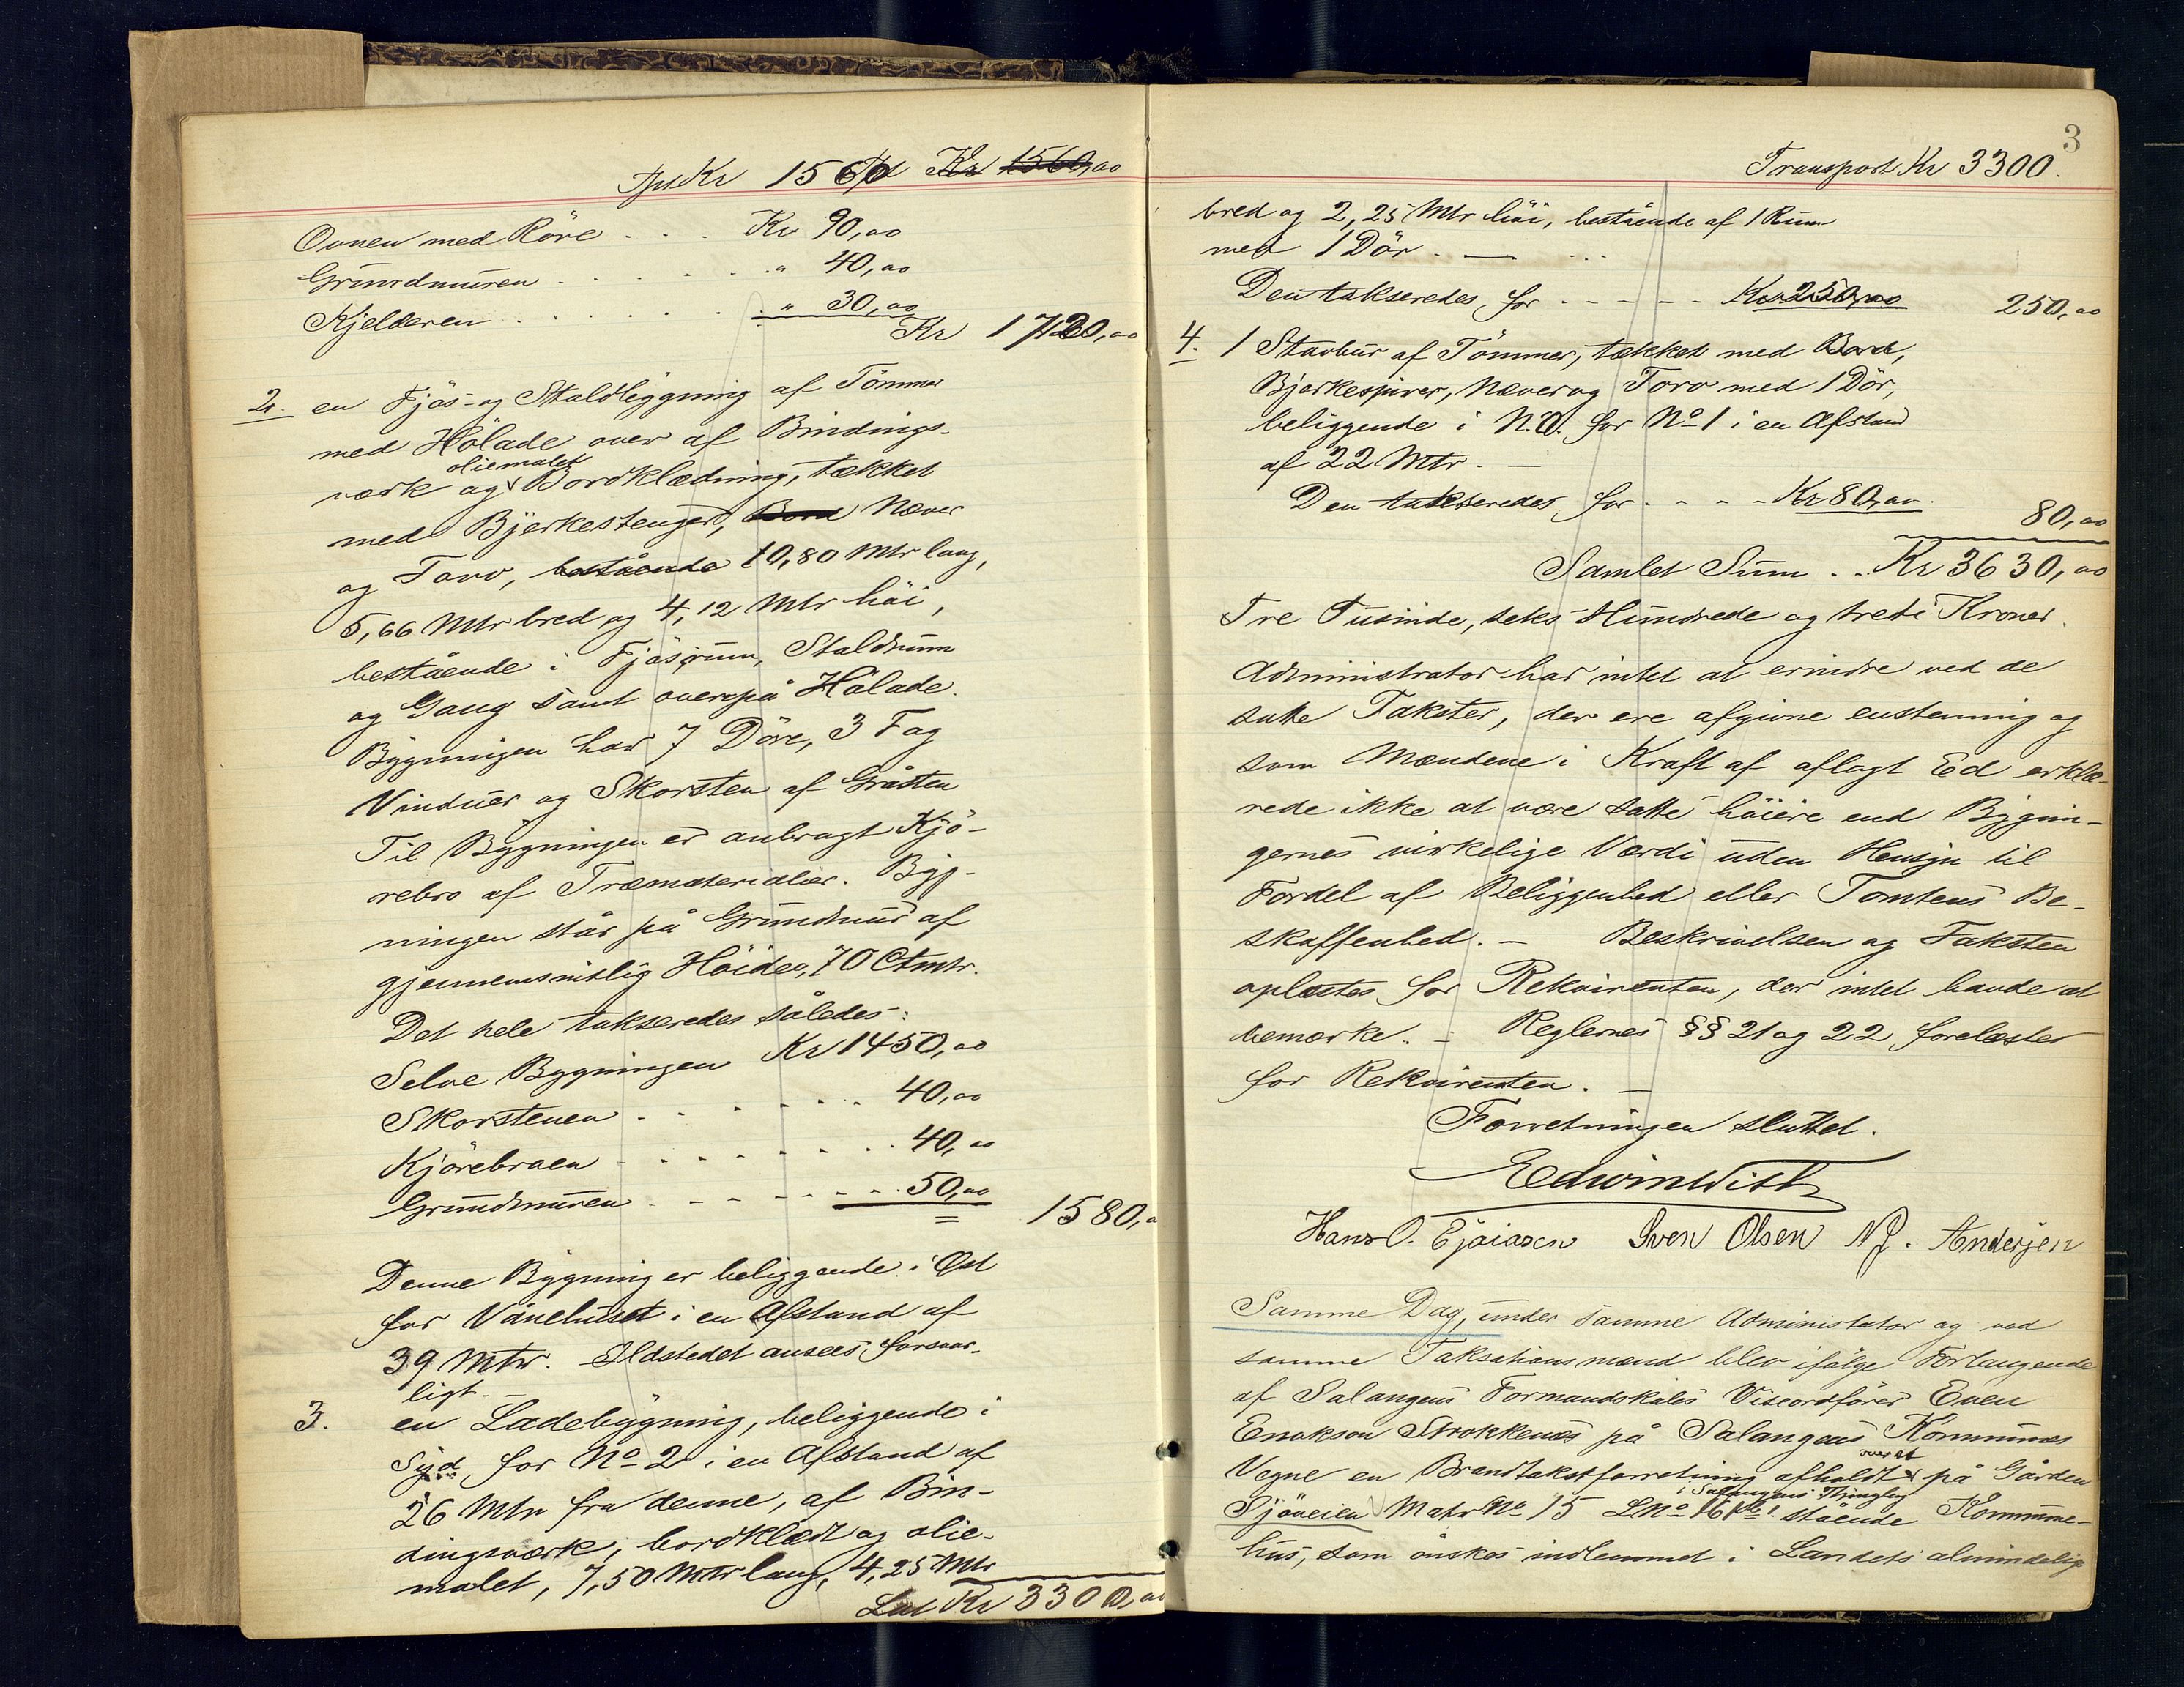 Kr 1560 Kr 1560,00
Ovnen med Röre . . . Kr 90,00
Grundmuren . . . . . . " 40,00
Kjelderen . . . . . . . " 30,00
Kr 1720,00
2. en Fjös- og Staldbygning af Tömmer
med Hölade over af Bindings-
oliemalet
verk og Bordklædning, tækket
med Bjerkestenger, Bord Næver
og Torv, bestående 10,80 Mtr lang,
5,66 Mtr bred og 4,12 Mtr höi,
bestående i Fjösrum, Staldrum
og Gang samt ovenpå Hölade.
Bygningen har 7 Döre, 3 Fag
Vinduer og Skorsten af Gråsten
Til Bygningen er anbragt Kjö-
rebro af Træmaterialier. Byg-
ningen står på Grundmur af
gjennemsnitlig Höide 0,70 Ctmtr.
Det hele takseredes således:
Selve Bygningen Kr 1450,00
Skorstenen . . . . . . . 40,00
Kjörebroen . . . . . . . . 40,00
Grundmuren . . . . . . 50,00
1580,0
Denne Bygning er beliggende i Øst
for Vånehuset i en Afstand af
39 Mtr. Ildstedet ansees forsvar-
ligt. —
3. en Ladebygning, beliggende i
Syd for No 2 i en Afstand af
26 Mtr fra denne, af Bin-
dingsverk, bordklædt og olie-
malet, 7,50 Mtr lang, 4,25 Mtr
Lat Kr 3300,00
3
Transport Kr 3300.
bred og 2,25 Mtr höi, bestående af 1 Rum
med 1 Dör. — . . .
Den takseredes for - - - - - Kr 250,00 250,00
4. 1 Stavbur af Tömmer, tækket med Bord,
Bjerkespirer, Næver og Torv med 1 Dör,
beliggende i N.O. for No 1 i en Afstand
af 22 Mtr. —
Den takseredes for . - - - Kr 80,00.
80,00
Samlet Sum . . Kr 3630,00
Tre Tusinde, seks Hundrede og treti Kroner.
Administrator har intet at erindre ved de
satte Takster, der ere afgivne enstemmig og
som Mændene i Kraft af aflagt Ed erklæ-
rede ikke at være satte höiere end Bygnin-
gernes virkelige Værdi uden Hensyn til
Fordel af Beliggenhed eller Tomtens Be-
skaffenhed. — Beskrivelsen og Taksten
oplæstes for Rekvirenten, der intet havde at
bemærke. — Reglernes §§ 21 og 22 forelæstes
for Rekvirenten. —
Forretningen sluttet.
Edwin With
Hans O. Esaiasen Sven Olsen N J. Andersen
Samme Dag, under samme Administrator og ved
samme Taksationsmænd blev ifölge Forlangende
af Salangens Formandskabs Viseordförer Even
Enokson Strokkenes på Salangens Kommunes
over et
Vegne en Brandtakstforretning afholdt på Gården
i Salangens Thinglag
Sjöveien Matr No 15 LNo 16 stående Kommune-
hus, som önskes indlemmet i Landets almindelige